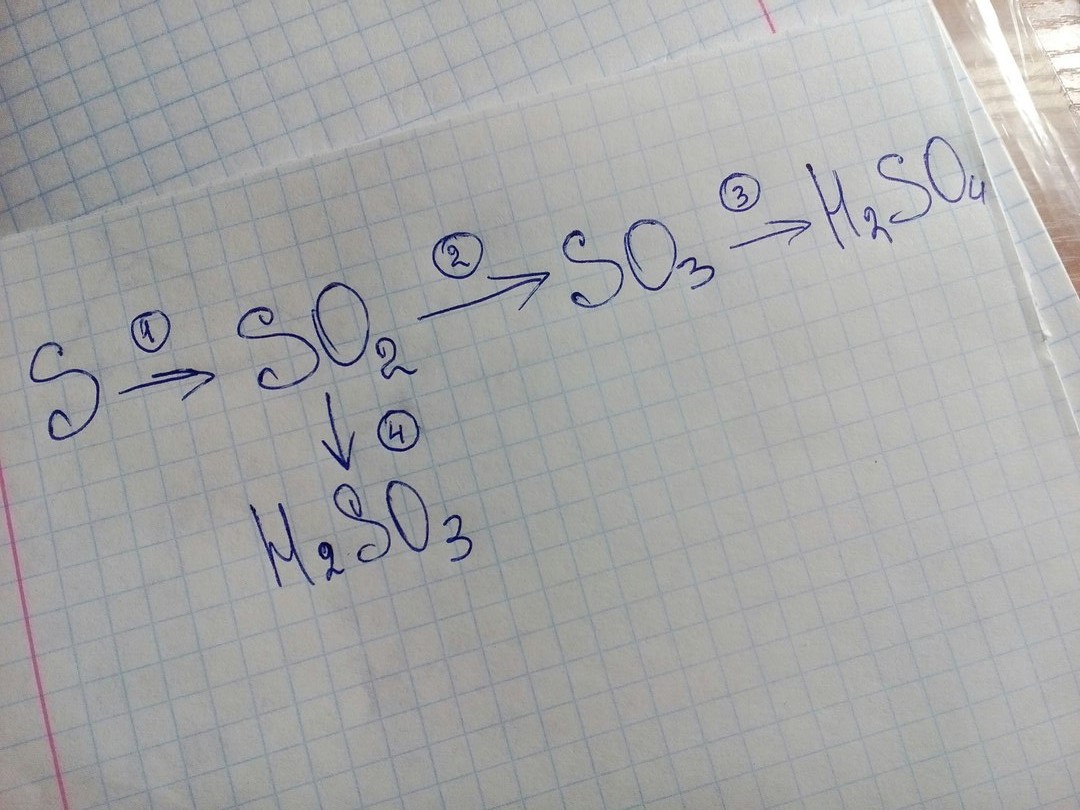 S ①→ SO₂ ②→ SO₃ ③→ H₂SO₄
↓ ④
H₂SO₃